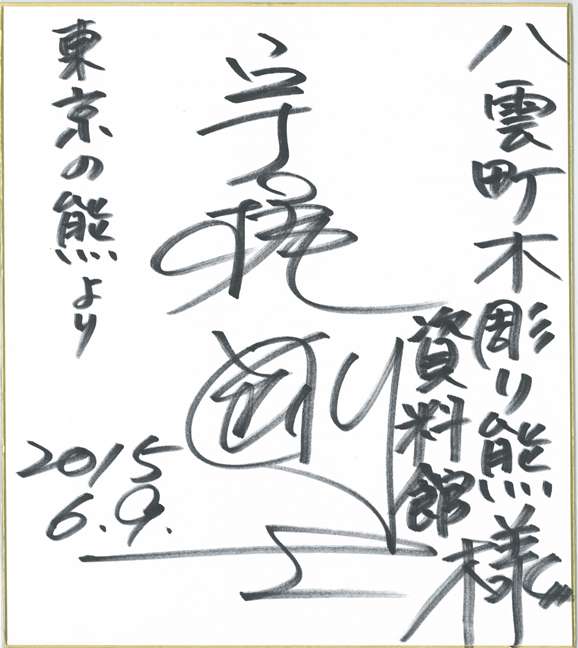 八雲町木彫り熊
資料館
様
東京の熊より
2015
6.9.